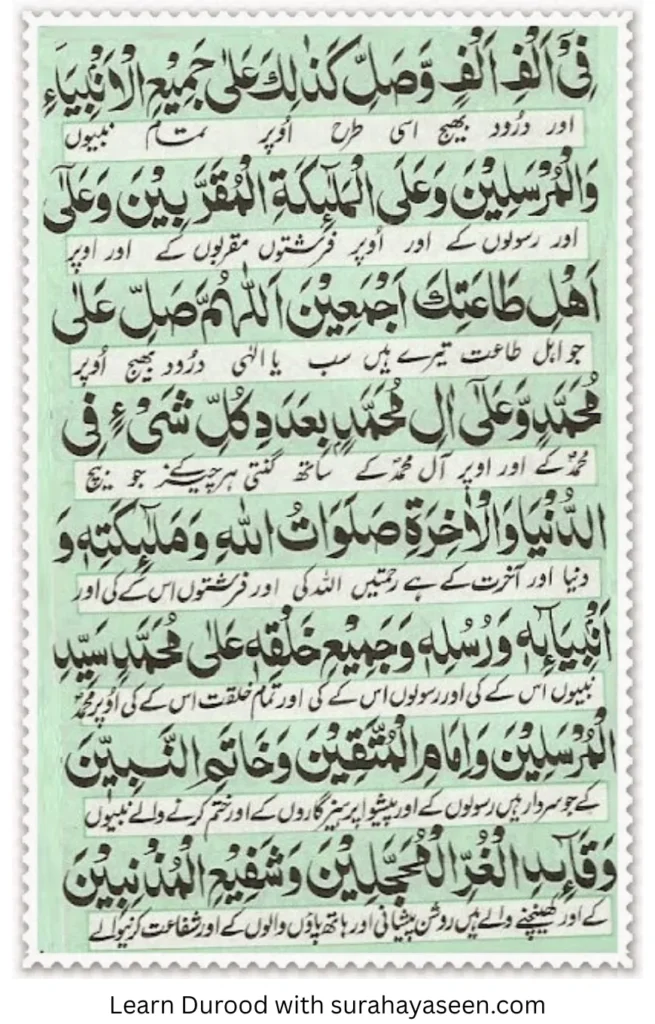 فِیْۤ اَلْفِ اَلْفٍ وَّصَلِّ كَذٰلِكَ عَلٰی جَمِیْعِ الْاَنْۢبِیَآءِ
اور درُود بھیج اسی طرح اُوپر تمام نبیوں
وَالْمُرْسَلِیْنَ وَعَلَی الْمَلٰٓئِكَةِ الْمُقَرَّبِیْنَ وَعَلٰۤی
اور رسولوں کے اور اُوپر فرشتوں مقربوں کے اور اوپر
اَهْلِ طَاعَتِكَ اَجْمَعِیْنَ اَللّٰهُمَّ صَلِّ عَلٰی
جو اہل طاعت تیرے ہیں سب یا الٰہی درُود بھیج اُوپر
مُحَمَّدٍ وَّعَلٰۤی اٰلِ مُحَمَّدٍۭ بِعَدَدِ كُلِّ شَیْءٍ فِی
محمدؐ کے اور اوپر آل محمدؐ کے ساتھ گنتی ہر چیز کے جو بیچ
الدُّنْیَا وَالْاٰخِرَةِ صَلَوَاتُ اللّٰهِ وَمَلٰٓئِكَتِهٖ وَ
دنیا اور آخرت کے ہے رحمتیں اللہ کی اور فرشتوں اس کے کی اور
اَنْۢبِیَآئِهٖ وَرُسُلِهٖ وَجَمِیْعِ خَلْقِهٖ عَلٰی مُحَمَّدٍ سَیِّدِ
نبیوں اس کے کی اور رسولوں اس کے کی اور تمام خلقت اس کے کی اُوپر محمدؐ
الْمُرْسَلِیْنَ وَاِمَامِ الْمُتَّقِیْنَ وَخَاتِمِ النَّبِیّٖنَ
کے جو سردار ہیں رسولوں کے اور پیشوا پرہیزگاروں کے اور ختم کرنے والے نبیوں
وَقَآئِدِ الْغُرِّ الْمُحَجَّلِیْنَ وَشَفِیْعِ الْمُذْنِبِیْنَ
کے اور کھینچنے والے ہیں روشن پیشانی اور ہاتھ پاؤں والوں کے اور شفاعت کرنیوالے
Learn Durood with surahayaseen.com